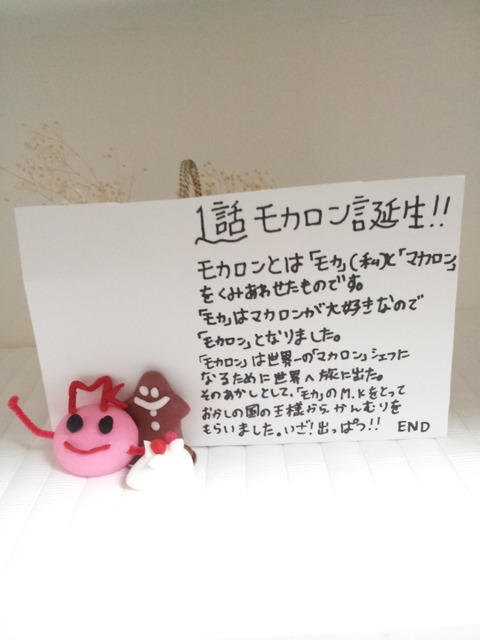 1話 モカロン誕生!!
モカロンとは「モカ」(私)と「マカロン」
をくみあわせたものです。
「モカ」はマカロンが大好きなので
「モカロン」となりました。
「モカロン」は世界一の「マカロン」シェフに
なるために世界へ旅に出た。
そのあかしとして、「モカ」のM.Kをとって
おかしの国の王様から、かんむりを
もらいました。いざ!出っぱつ!! END
MK